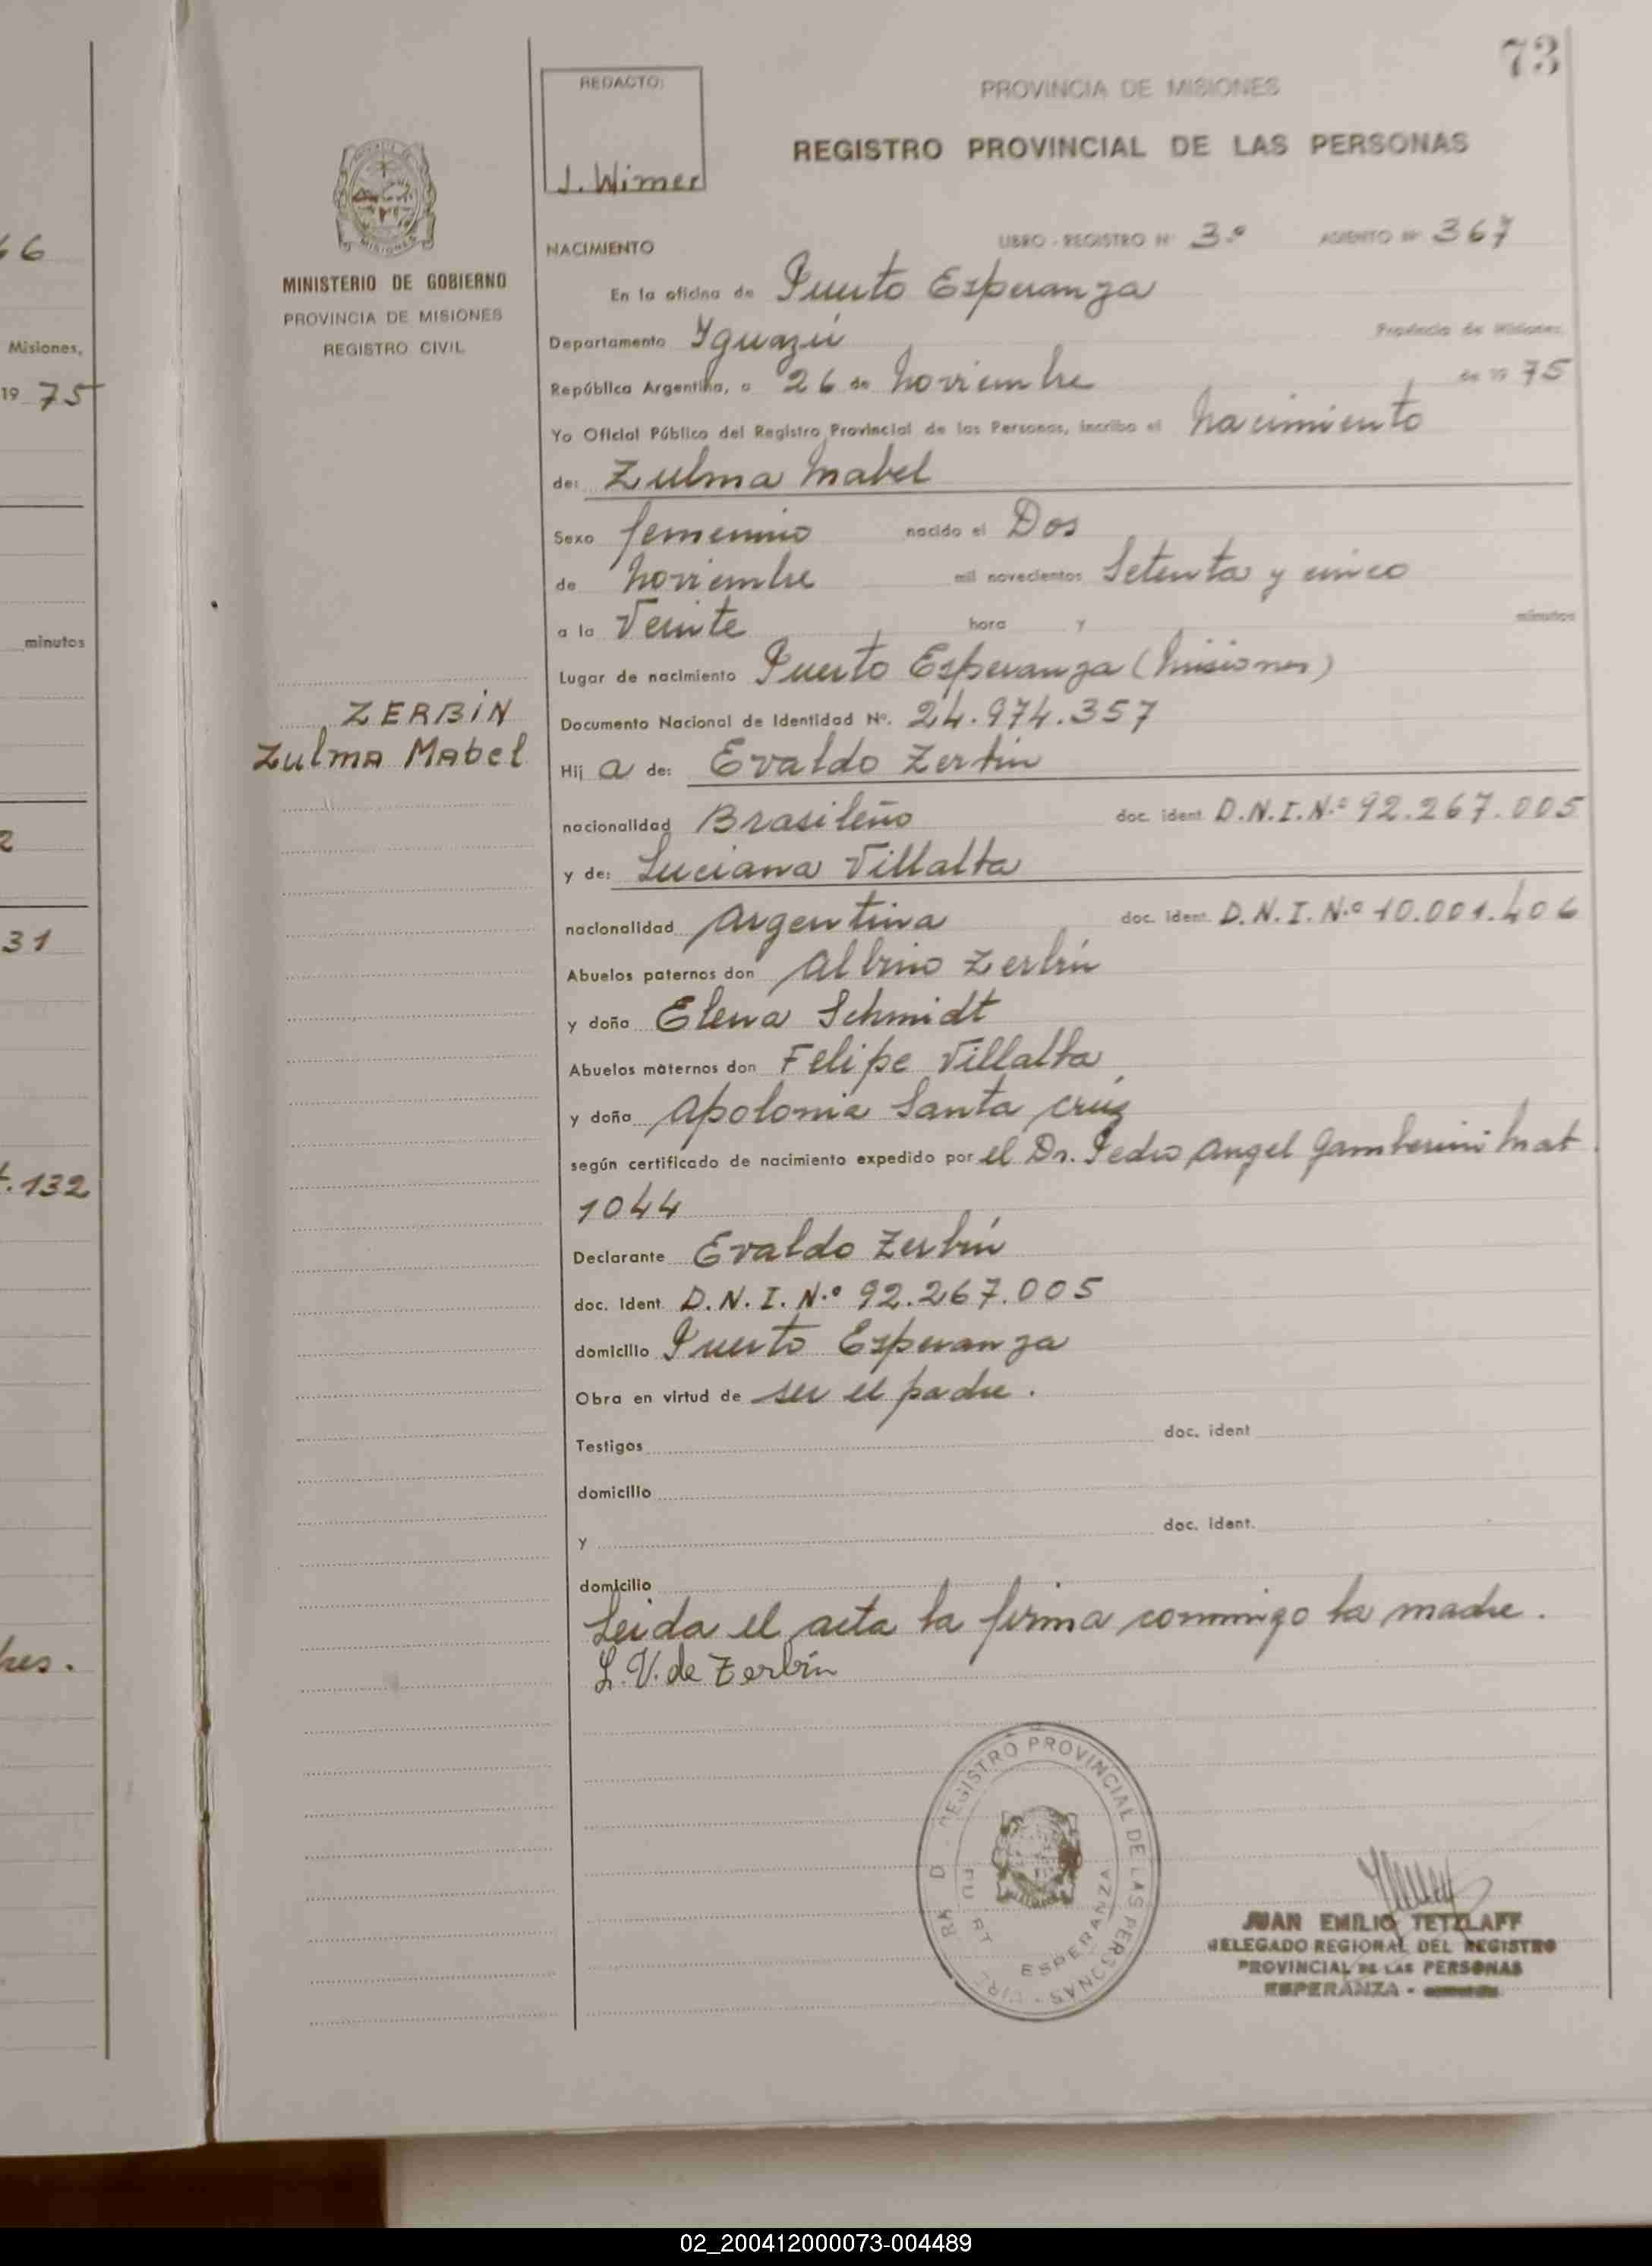 73
REDACTO:
J. Wimer
PROVINCIA DE MISIONES
REGISTRO PROVINCIAL DE LAS PERSONAS
MINISTERIO DE GOBIERNO
PROVINCIA DE MISIONES
REGISTRO CIVIL
ZERBIN
Zulma Mabel
NACIMIENTO LIBRO - REGISTRO Nº 3º ASIENTO Nº 367
En la oficina de Puerto Esperanza
Departamento Yguazú Provincia de Misiones,
República Argentina, a 26 de Noviembre de 19 75
Yo Oficial Público del Registro Provincial de las Personas, incribo el Nacimiento
de: Zulma Mabel
Sexo femenino nacido el Dos
de Noviembre mil novecientos Setenta y cinco
a la Veinte hora y minutos
Lugar de nacimiento Puerto Esperanza (Misiones)
Documento Nacional de Identidad Nº. 24.974.357
Hij a de: Evaldo Zerbin
nacionalidad Brasileño doc. ident. D.N.I.N.º 92.267.005
y de: Luciana Villalba
nacionalidad Argentina doc. ident. D.N.I.N.º 10.001.406
Abuelos paternos don Albino Zerbín
y doña Elena Schmidt
Abuelos maternos don Felipe Villalba
y doña Apolonia Santa Crúz
según certificado de nacimiento expedido por el Dr. Pedro Angel Gamberini Mat.
1044
Declarante Evaldo Zerbín
doc. Ident. D.N.I.N.º 92.267.005
domicilio Puerto Esperanza
Obra en virtud de ser el padre.
Testigos doc. ident
domicilio
y doc. ident.
domicilio
Leida el acta la firma conmigo la madre.
L.V. de Zerbín
REGISTRO PROVINCIAL DE LAS PERSONAS
ESPERANZA
JUAN EMILIO TETZLAFF
DELEGADO REGIONAL DEL REGISTRO
PROVINCIAL DE LAS PERSONAS
ESPERANZA -
66
Misiones,
19 75
minutos
2
31
.132
res.
02_200412000073-004489